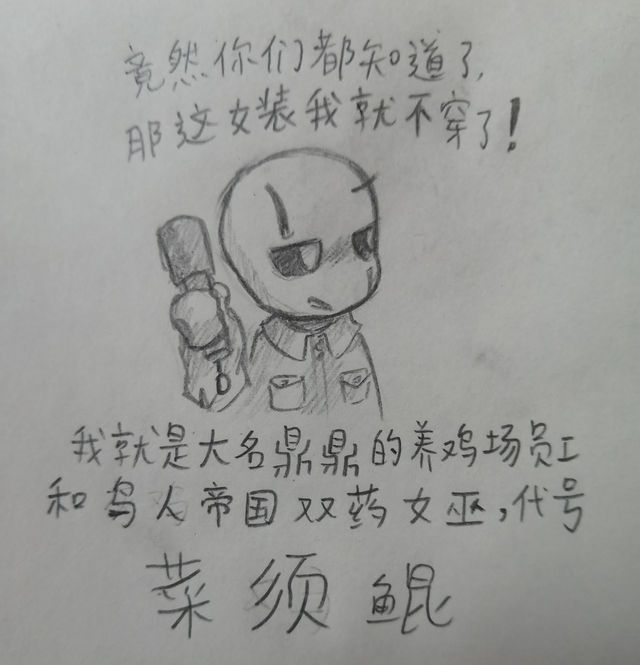 竟然你们都知道了，
那这女装我就不穿了！
我就是大名鼎鼎的养鸡场员工
和鸟人帝国双药女巫，代号
菜须鲲